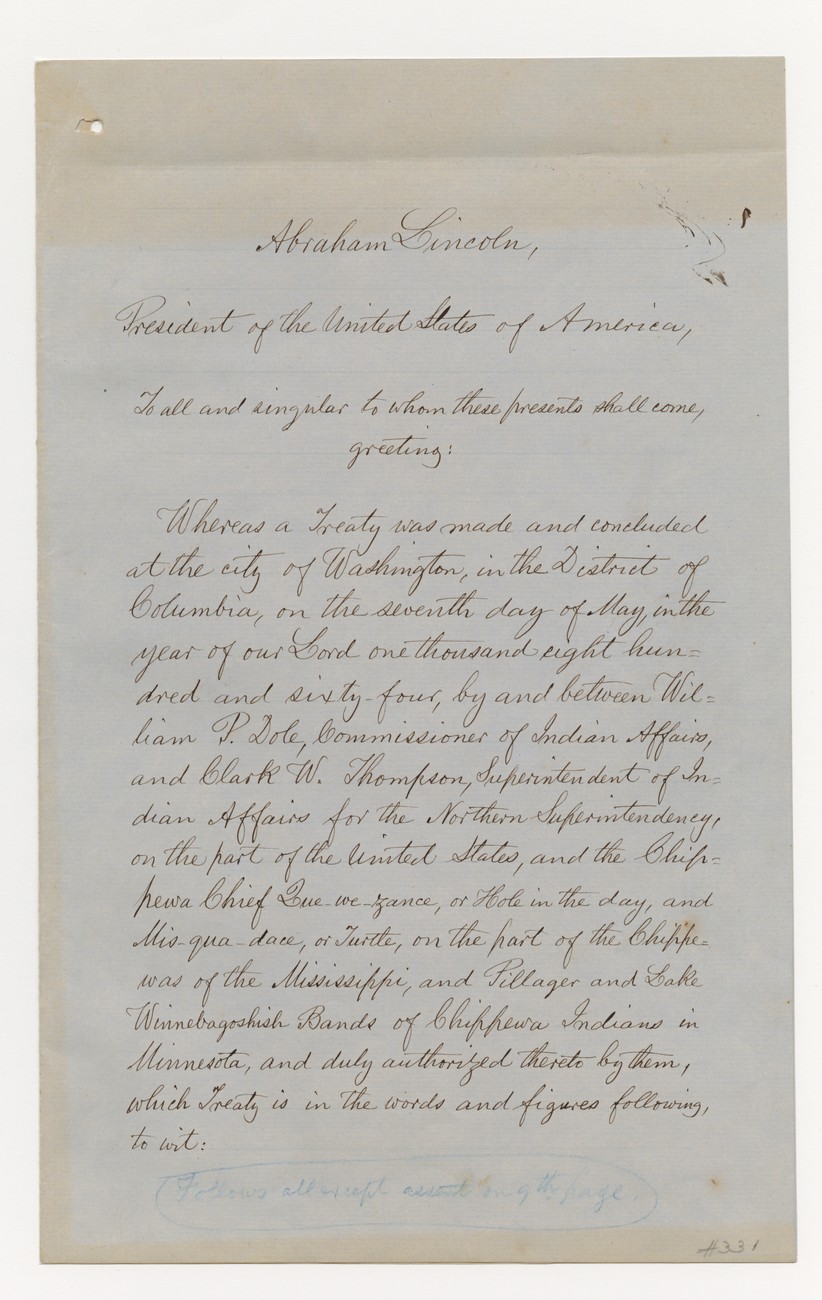 Abraham Lincoln,
President of the United States of America,
To all and singular to whom these presents shall come,
greeting:
Whereas a Treaty was made and concluded
at the city of Washington, in the District of
Columbia, on the seventh day of May, in the
year of our Lord one thousand eight hun=
dred and sixty-four, by and between Wil=
liam P. Dole, Commissioner of Indian Affairs,
and Clark W. Thompson, Superintendent of In=
dian Affairs for the Northern Superintendency,
on the part of the United States, and the Chip=
pewa Chief Que-we-zance, or Hole in the day, and
Mis-qua-dace, or Turtle, on the part of the Chippe=
was of the Mississippi, and Pillager and Lake
Winnebagoshish Bands of Chippewa Indians in
Minnesota, and duly authorized thereto by them,
which Treaty is in the words and figures following,
to wit:
Follows all except assent on 9th page.
#331